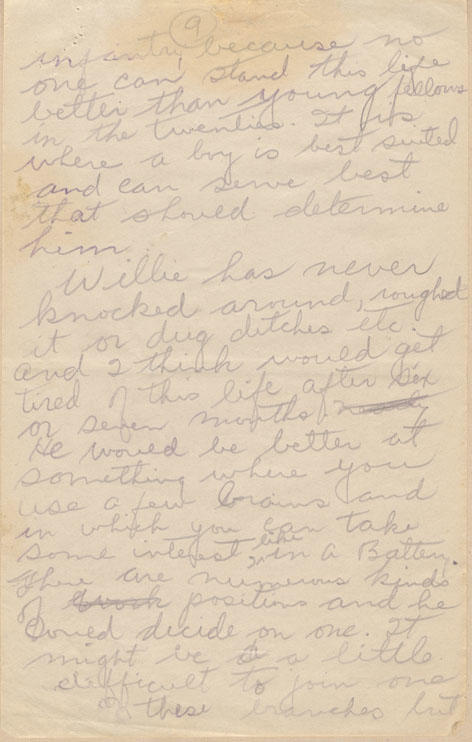 9
infantry, because no
one can stand this life
better than young fellows
in the twenties. It is
where a boy is best suited
and can serve best
that should determine
him.
Willie has never
knocked around, roughed
it or dug ditches etc.
and I think would get
tired of this life after six
or seven months
He would be better at
something where you
use a few brains and
in which you can take
some interest like in a Battery.
There are numerous kinds
of positions and he
could decide on one. It
might be a little
difficult to join one
of these branches but